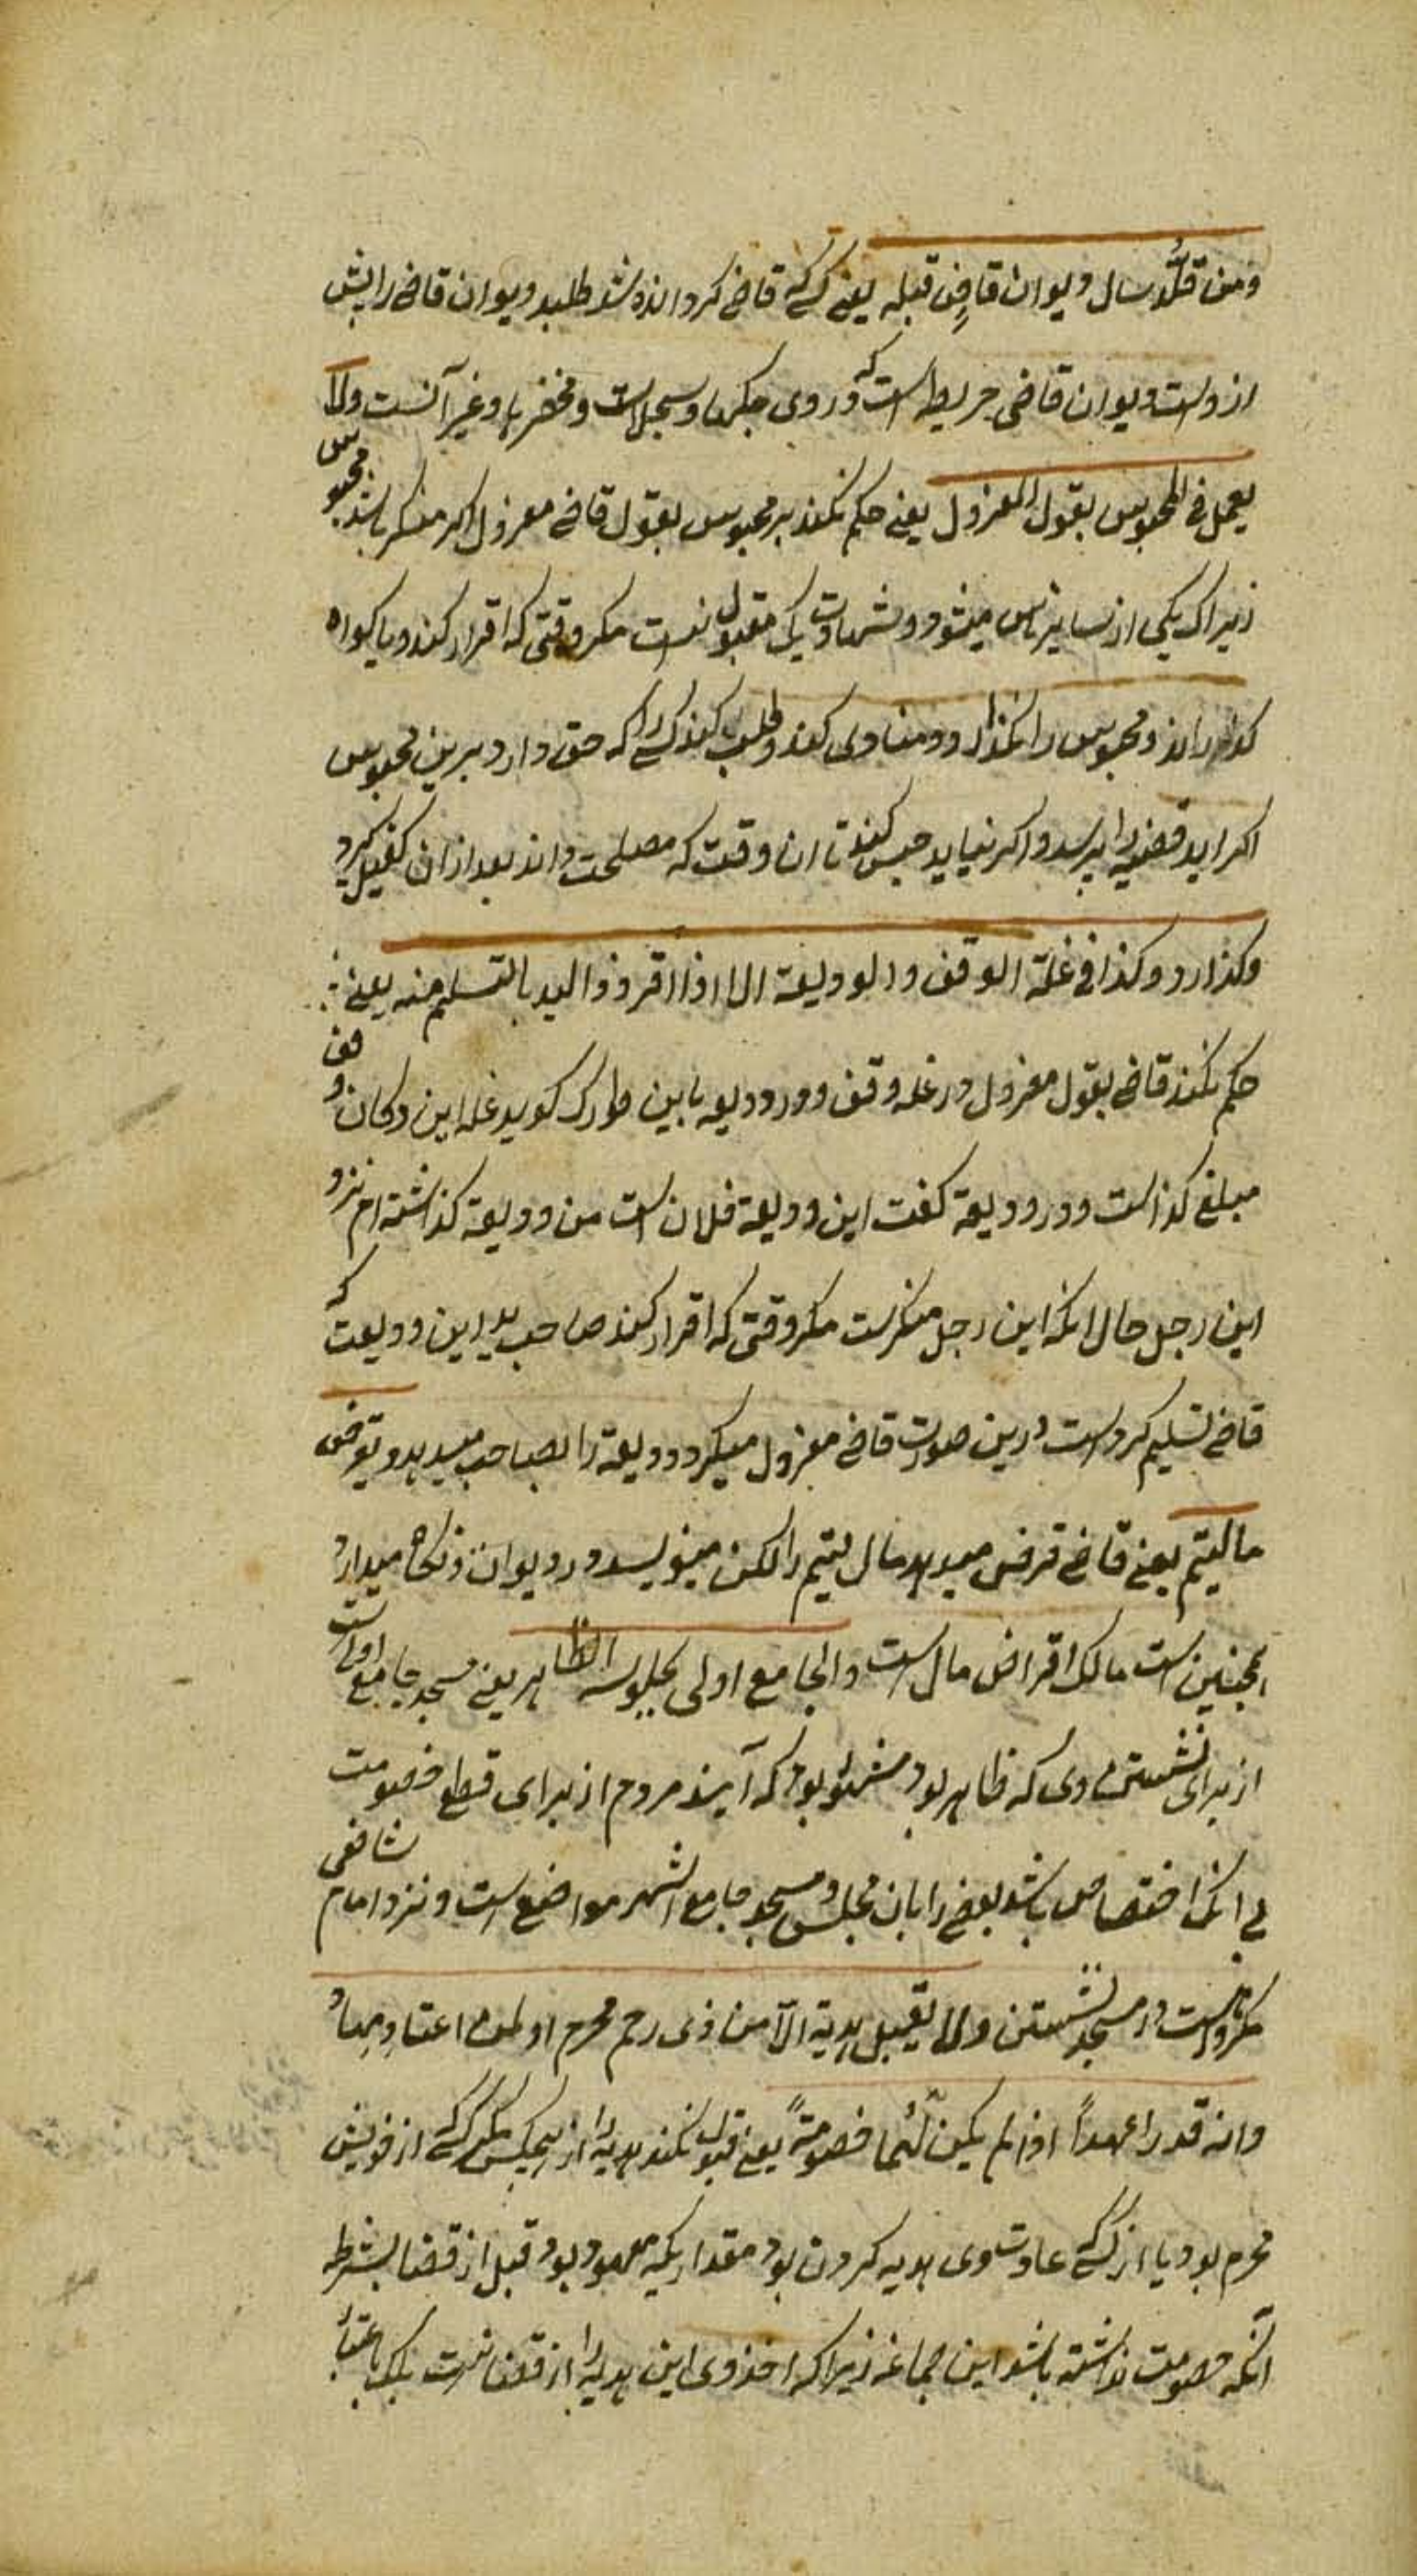 ومن قلّد سال دیوان قاضٍ قبله یعنے کسے که قاضے کردانده شد طلبد دیوان قاضے را پیش
از وست ودیوان قاضی خریطه است که در وی حکمها وسجلات ومخضرها وغیر آنست ولا
یعمل فی المحبوس بقول المعزول یعنے حکم نکند بر محبوس بقول قاضے معزول اکر منکر باشد محبوس
زیراک یکی از سایر ناس میشود وشهادت یک مقبول نیست مکر وقتی که اقرار کند ویا کواه
کذراند ومحبوس را نکذارد ومنادی کند وطلب کند کسے را که حق دارد برین محبوس
اکر اید قضیه را پرسد واکر نیاید حبس کند تا ان وقت که مصلحت داند بعد از ان کفیل کیرد
وکذارد وکذا فی غلة الوقف والودیعة الا اذا اقر ذو الید بالتسلیم منه یعنے
حکم نکند قاضے بقول معزول در غله وقف ودر ودیعه باین طور که کوید غله این دکان وقف
مبلغ کذاست ودر ودیعة کفت این ودیعة فلان است من ودیعة کذاشته ام نزد
این رجل حال انکه این رجل منکرست مکر وقتی که اقرار کند صاحب ید این ودیعت که
قاضے تسلیم کرده است درین صورت قاضے معزول میکیرد ودیعة را بصاحب میدهد ویقرض
مال یتیم یعنے قاضے قرض میدهد مال یتیم را لکن مینویسد در دیوان ونکاه میدارد
همچنین است مالک اقراض مال است والجامع اولی بجلوسه الظاهر یعنے مسجد جامع اولی است
از برای نشستن وی که ظاهر بود مشهور بود که آیند مردم از برای قطع خصومت
بے انکه اختصاص باشد بعضے را بان مجلس ومسجد جامع اشهر مواضع است ونزد امام شافعی
مکروه است در مسجد نشستن ولا یقبل هدیة الّا من ذی رحم محرم او ممن اعتاد مهاد
وانه قدرا عهداً اذا لم یکن لهما خصومةً یعنے قبول نکند هدیه را از هیچکس مکر کسے از خویش
محرم بود یا از کسے که عادت وی هدیه کردن بود مقداریکه معهود بود قبل از قضا بشرط
آنکه خصومت نداشته باشد این جماعه زیرا که اخذ وی این هدیه را از قضا نیست بلک باعتبار